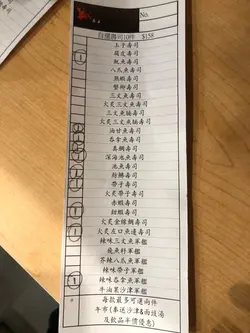 No.
自選壽司10件 $158
玉子壽司
腐皮壽司
魷魚壽司
八爪魚壽司
熟蝦壽司
蟹柳壽司
三文魚壽司
火炙三文魚壽司
三文魚腩壽司
火炙三文魚腩壽司
油甘魚壽司
吞拿魚壽司
真鯛壽司
深海池魚壽司
池魚壽司
劍魚壽司
帶子壽司
火炙帶子壽司
赤蝦壽司
甜蝦壽司
火炙金鎗鯛壽司
火炙左口魚邊壽司
辣味三文魚軍艦
飛魚籽軍艦
芥辣八爪魚軍艦
辣味帶子軍艦
辣味吞拿魚軍艦
牛油果沙津軍艦
每款最多可選两件
午市(奉送沙津&麵豉湯
及飲品半價優惠)